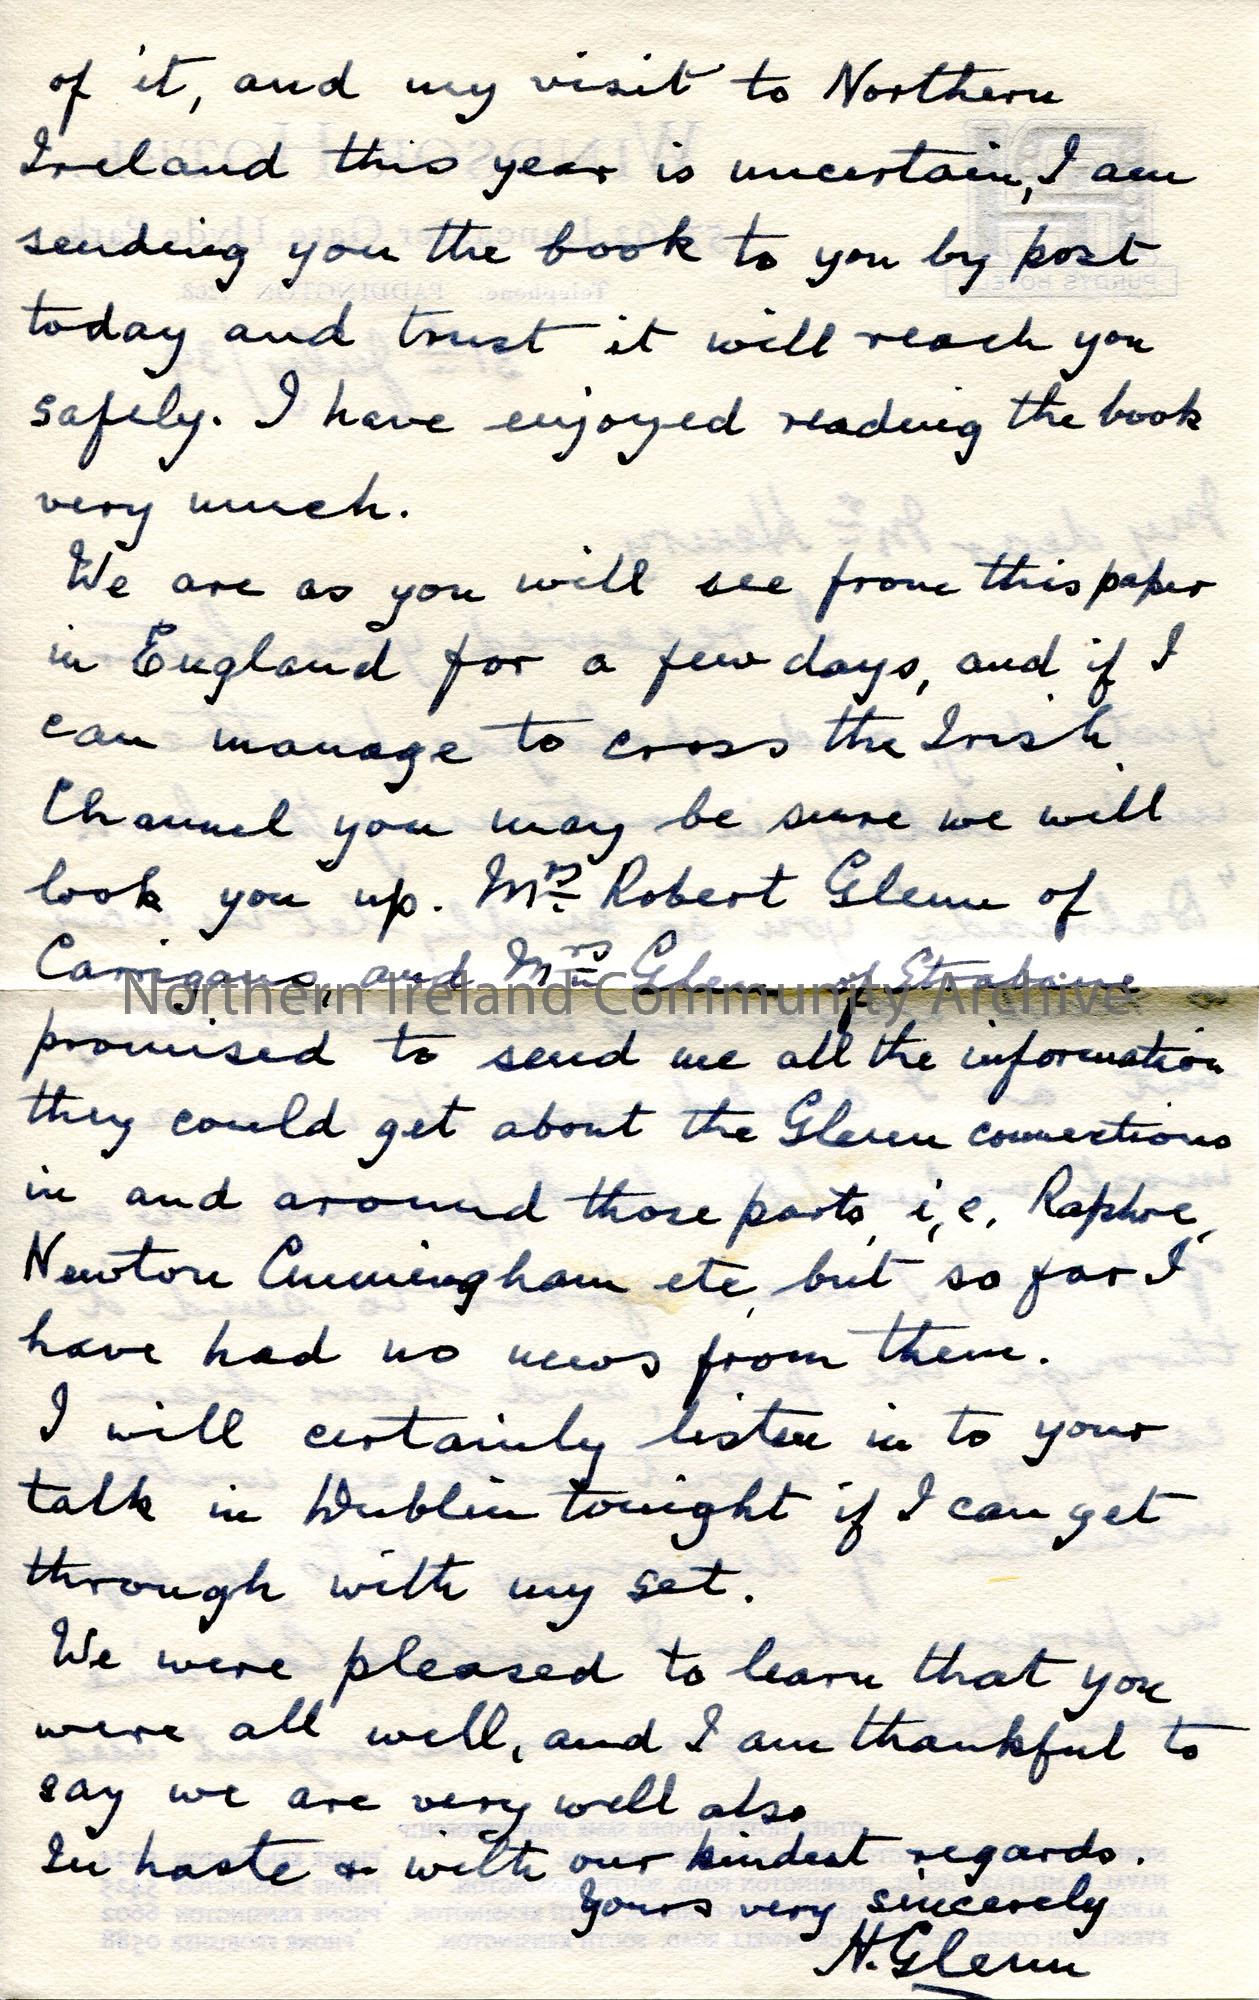 of it, and my visit to Northern
Ireland this year is uncertain, I am
sending you the book to you by post
today and trust it will reach you
safely. I have enjoyed reading the book
very much.
We are as you will see from this paper
in England for a few days, and if I
can manage to cross the Irish
Channel you may be sure we will
look you up. Mrs. Robert Glenn of
Carrigans, and Mrs Glenn of Strabane
Northern Ireland Community Archive
promised to send me all the information
they could get about the Glenn connections
in and around those parts, i,e, Raphoe,
Newton Cunningham etc, but so far I
have had no news from them.
I will certainly listen in to your
talk in Dublin tonight if I can get
through with my set.
We were pleased to learn that you
were all well, and I am thankful to
say we are very well also
In haste & with our kindest regards.
Yours very sincerely
H. Glenn